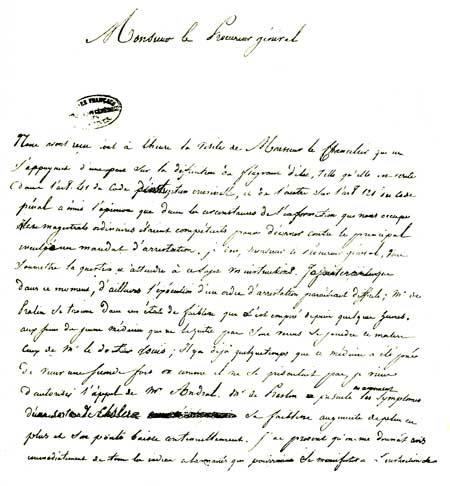 Monsieur le Procureur général
FRANÇAISES
Nous avons reçu tout à l'heure la visite de Monsieur le Chancelier qui en
s'appuyant d'une part sur la définition du flagrant délit, telle qu'elle est écrite
dans l'art. 41 du Code d'instruction criminelle, et de l'autre sur l'art 121 du Code
pénal a émis l'opinion que dans les circonstances de l'information qui nous occupe
les magistrats ordinaires étaient compétents pour décerner contre le principal
inculpé un mandat d'arrestation. J'ai, Monsieur le Procureur général,
soumettre la question et attendre à ce sujet vos instructions. J'ajouterai que
dans ce moment, d'ailleurs l'exécution d'un ordre d'arrestation paraîtrait difficile; Mr de
Praslin se trouve dans un état de faiblesse qui s'est empiré depuis quelques heures.
aux yeux du jeune médecin qui ne le quitte pas se joindre ce matin
ceux de Mr le docteur Louis; il y a déjà quelque temps que ce médecin a été prié
de venir une seconde fois et comme il ne se présentait pas, je viens
d'autoriser l'appel de Mr Andral. Mr de Praslin a ensuite les symptômes
du choléra sa faiblesse augmente de plus en
plus et son pouls baisse continuellement. J'ai prescrit qu'on me donnât avis
immédiatement de tous les indices alarmants qui pourraient se manifester. L'instruction de